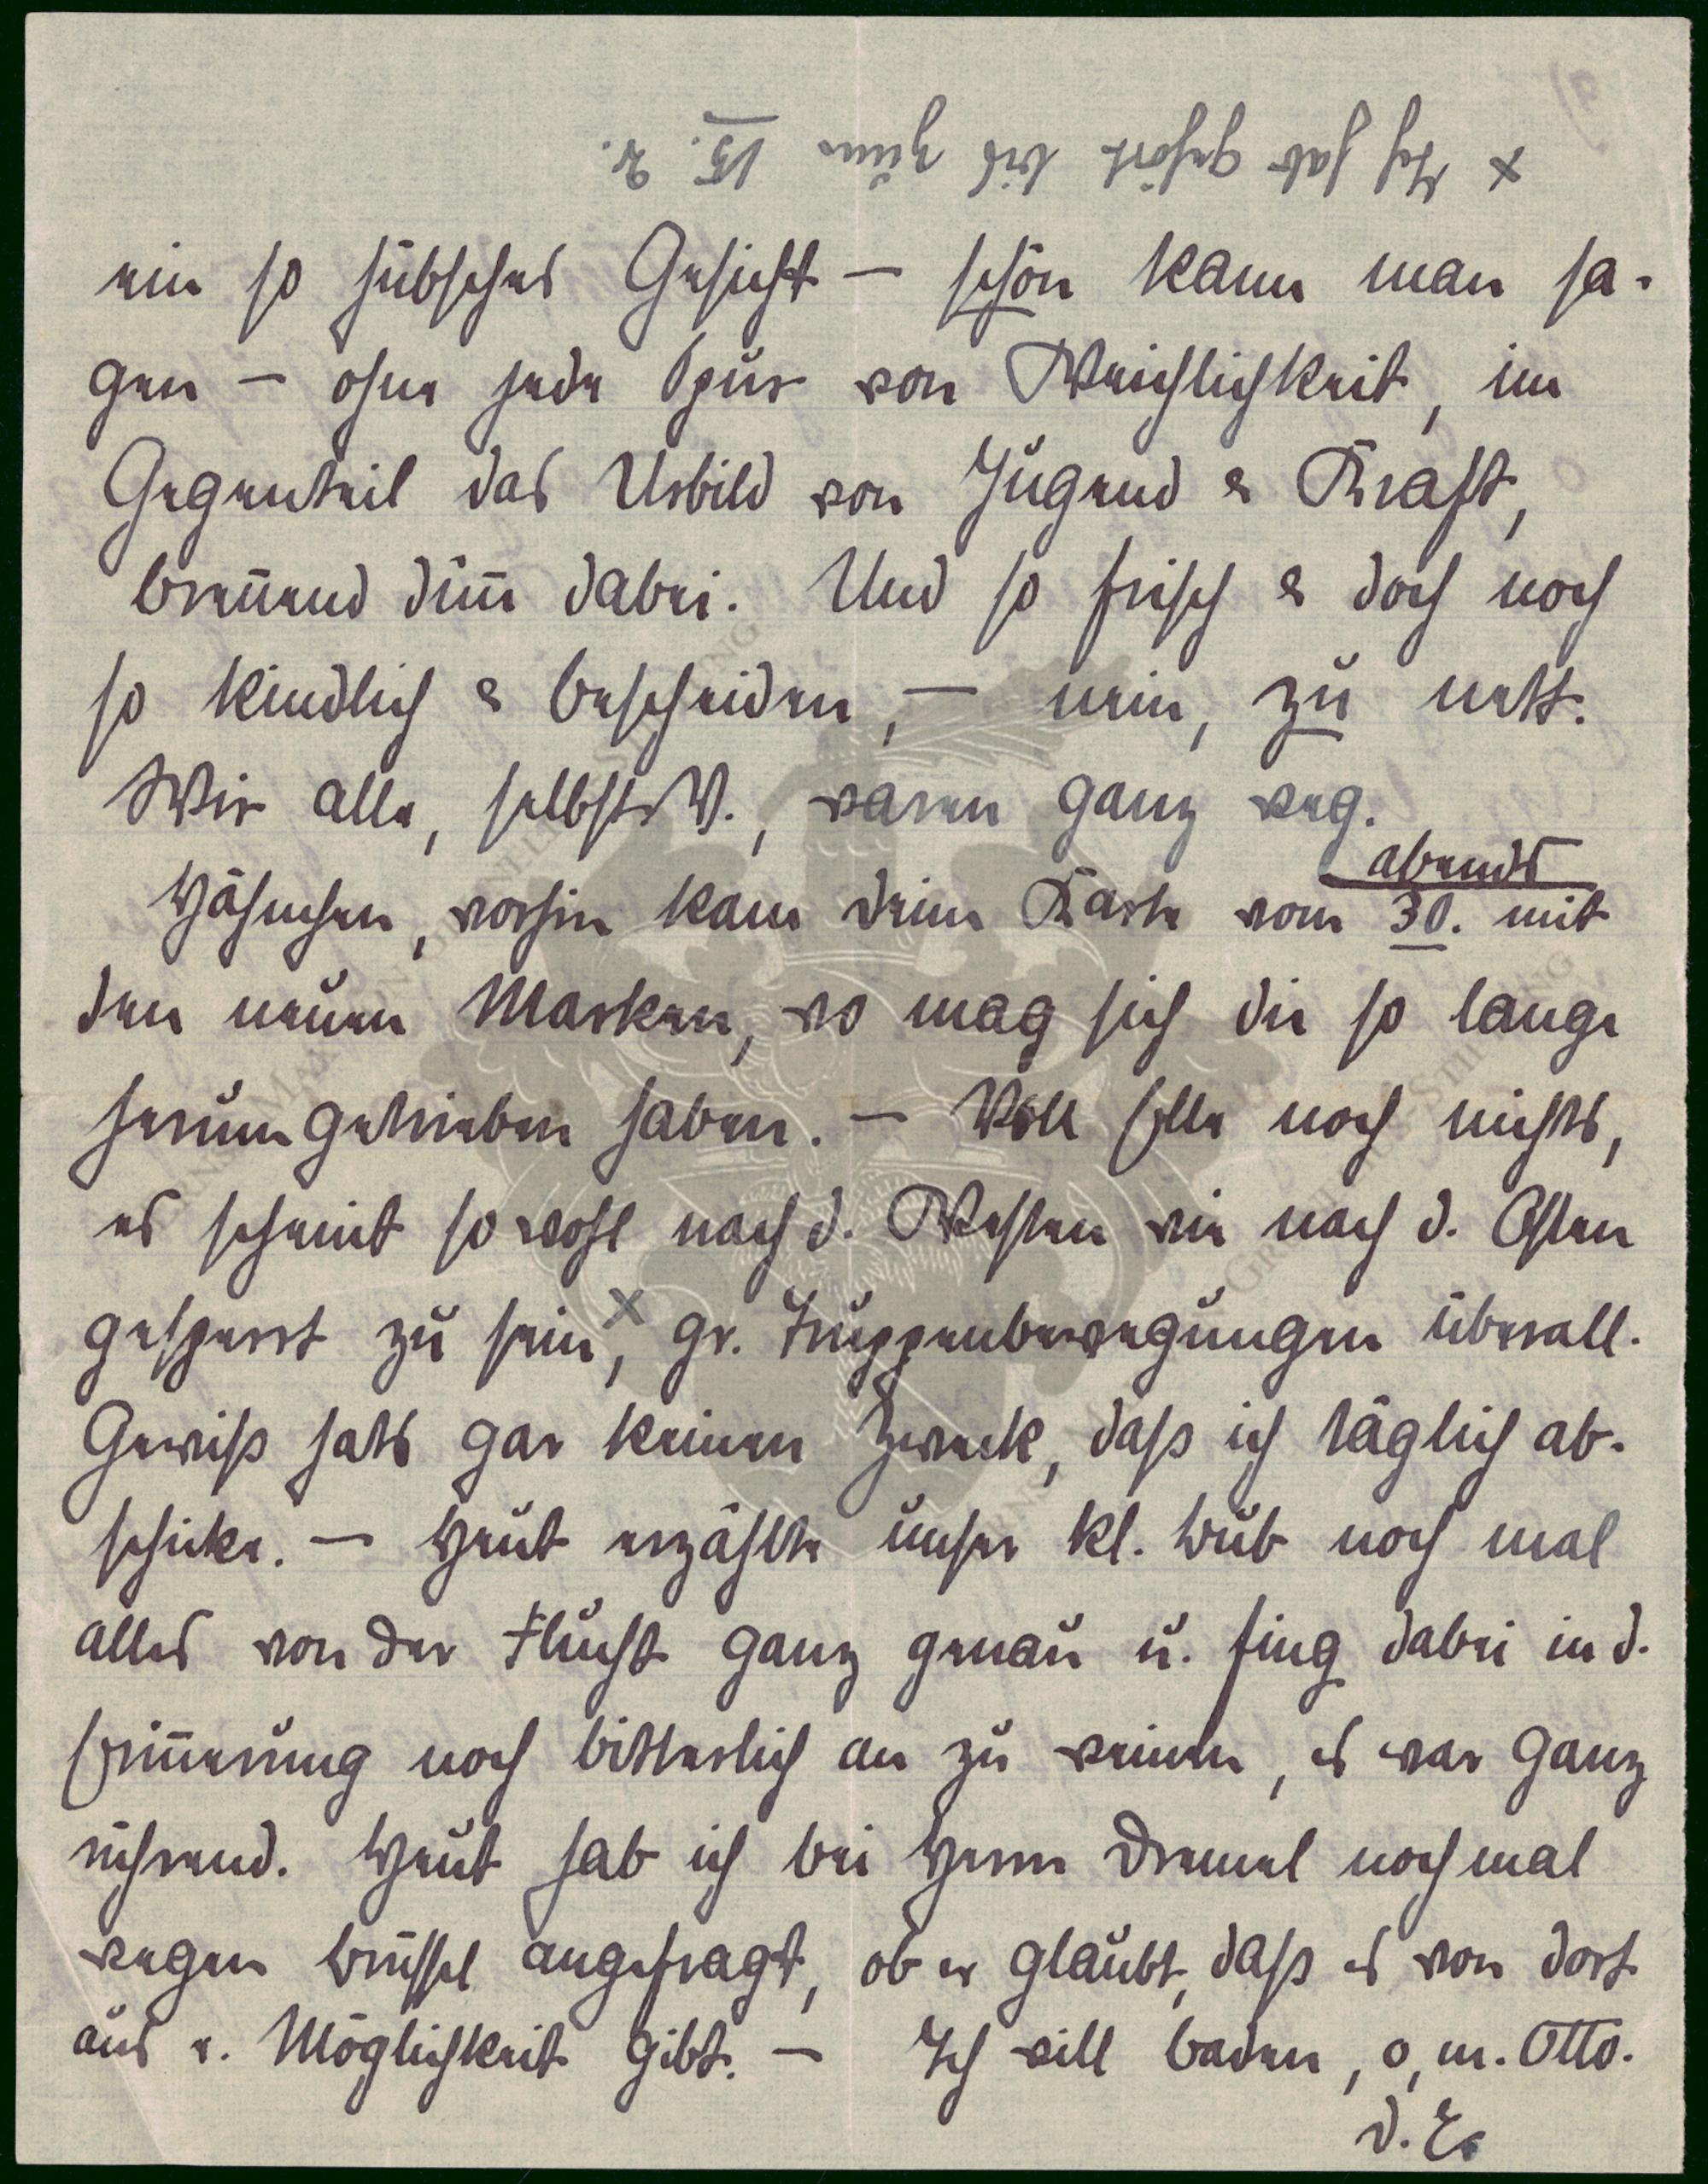 x Ich hab gehört bis zum 15. 2.
ein so hübsches Gesicht – schön kann man sa-
gen – ohne jede Spur von Weichlichkeit, im
Gegenteil das Urbild von Jugend & Kraft,
brennend dünn dabei. Und so frisch & doch noch
so kindlich & bescheiden, – nein, zu nett.
Wir alle, selbst V., waren ganz weg.
Häschen, vorhin kam deine Karte vom 30. abends mit
den neuen Marken, wo mag sich die so lange
herumgetrieben haben. – Von Elle noch nichts,
es scheint sowohl nach d. Westen wie nach d. Osten
gesperrt zu sein x, gr. Truppenbewegungen überall.
Gewiß hats gar keinen Zweck, daß ich täglich ab-
schicke. – Heut erzählte unser kl. Bub noch mal
alles von der Flucht ganz genau u. fing dabei in d.
Erinnerung noch bitterlich an zu weinen, es war ganz
rührend. Heut hab ich bei Herrn Dremel noch mal
wegen Brüssel angefragt, ob er glaubt, daß es von dort
aus e. Möglichkeit gibt. – Ich will baden, o, m. Otto.
d. E.